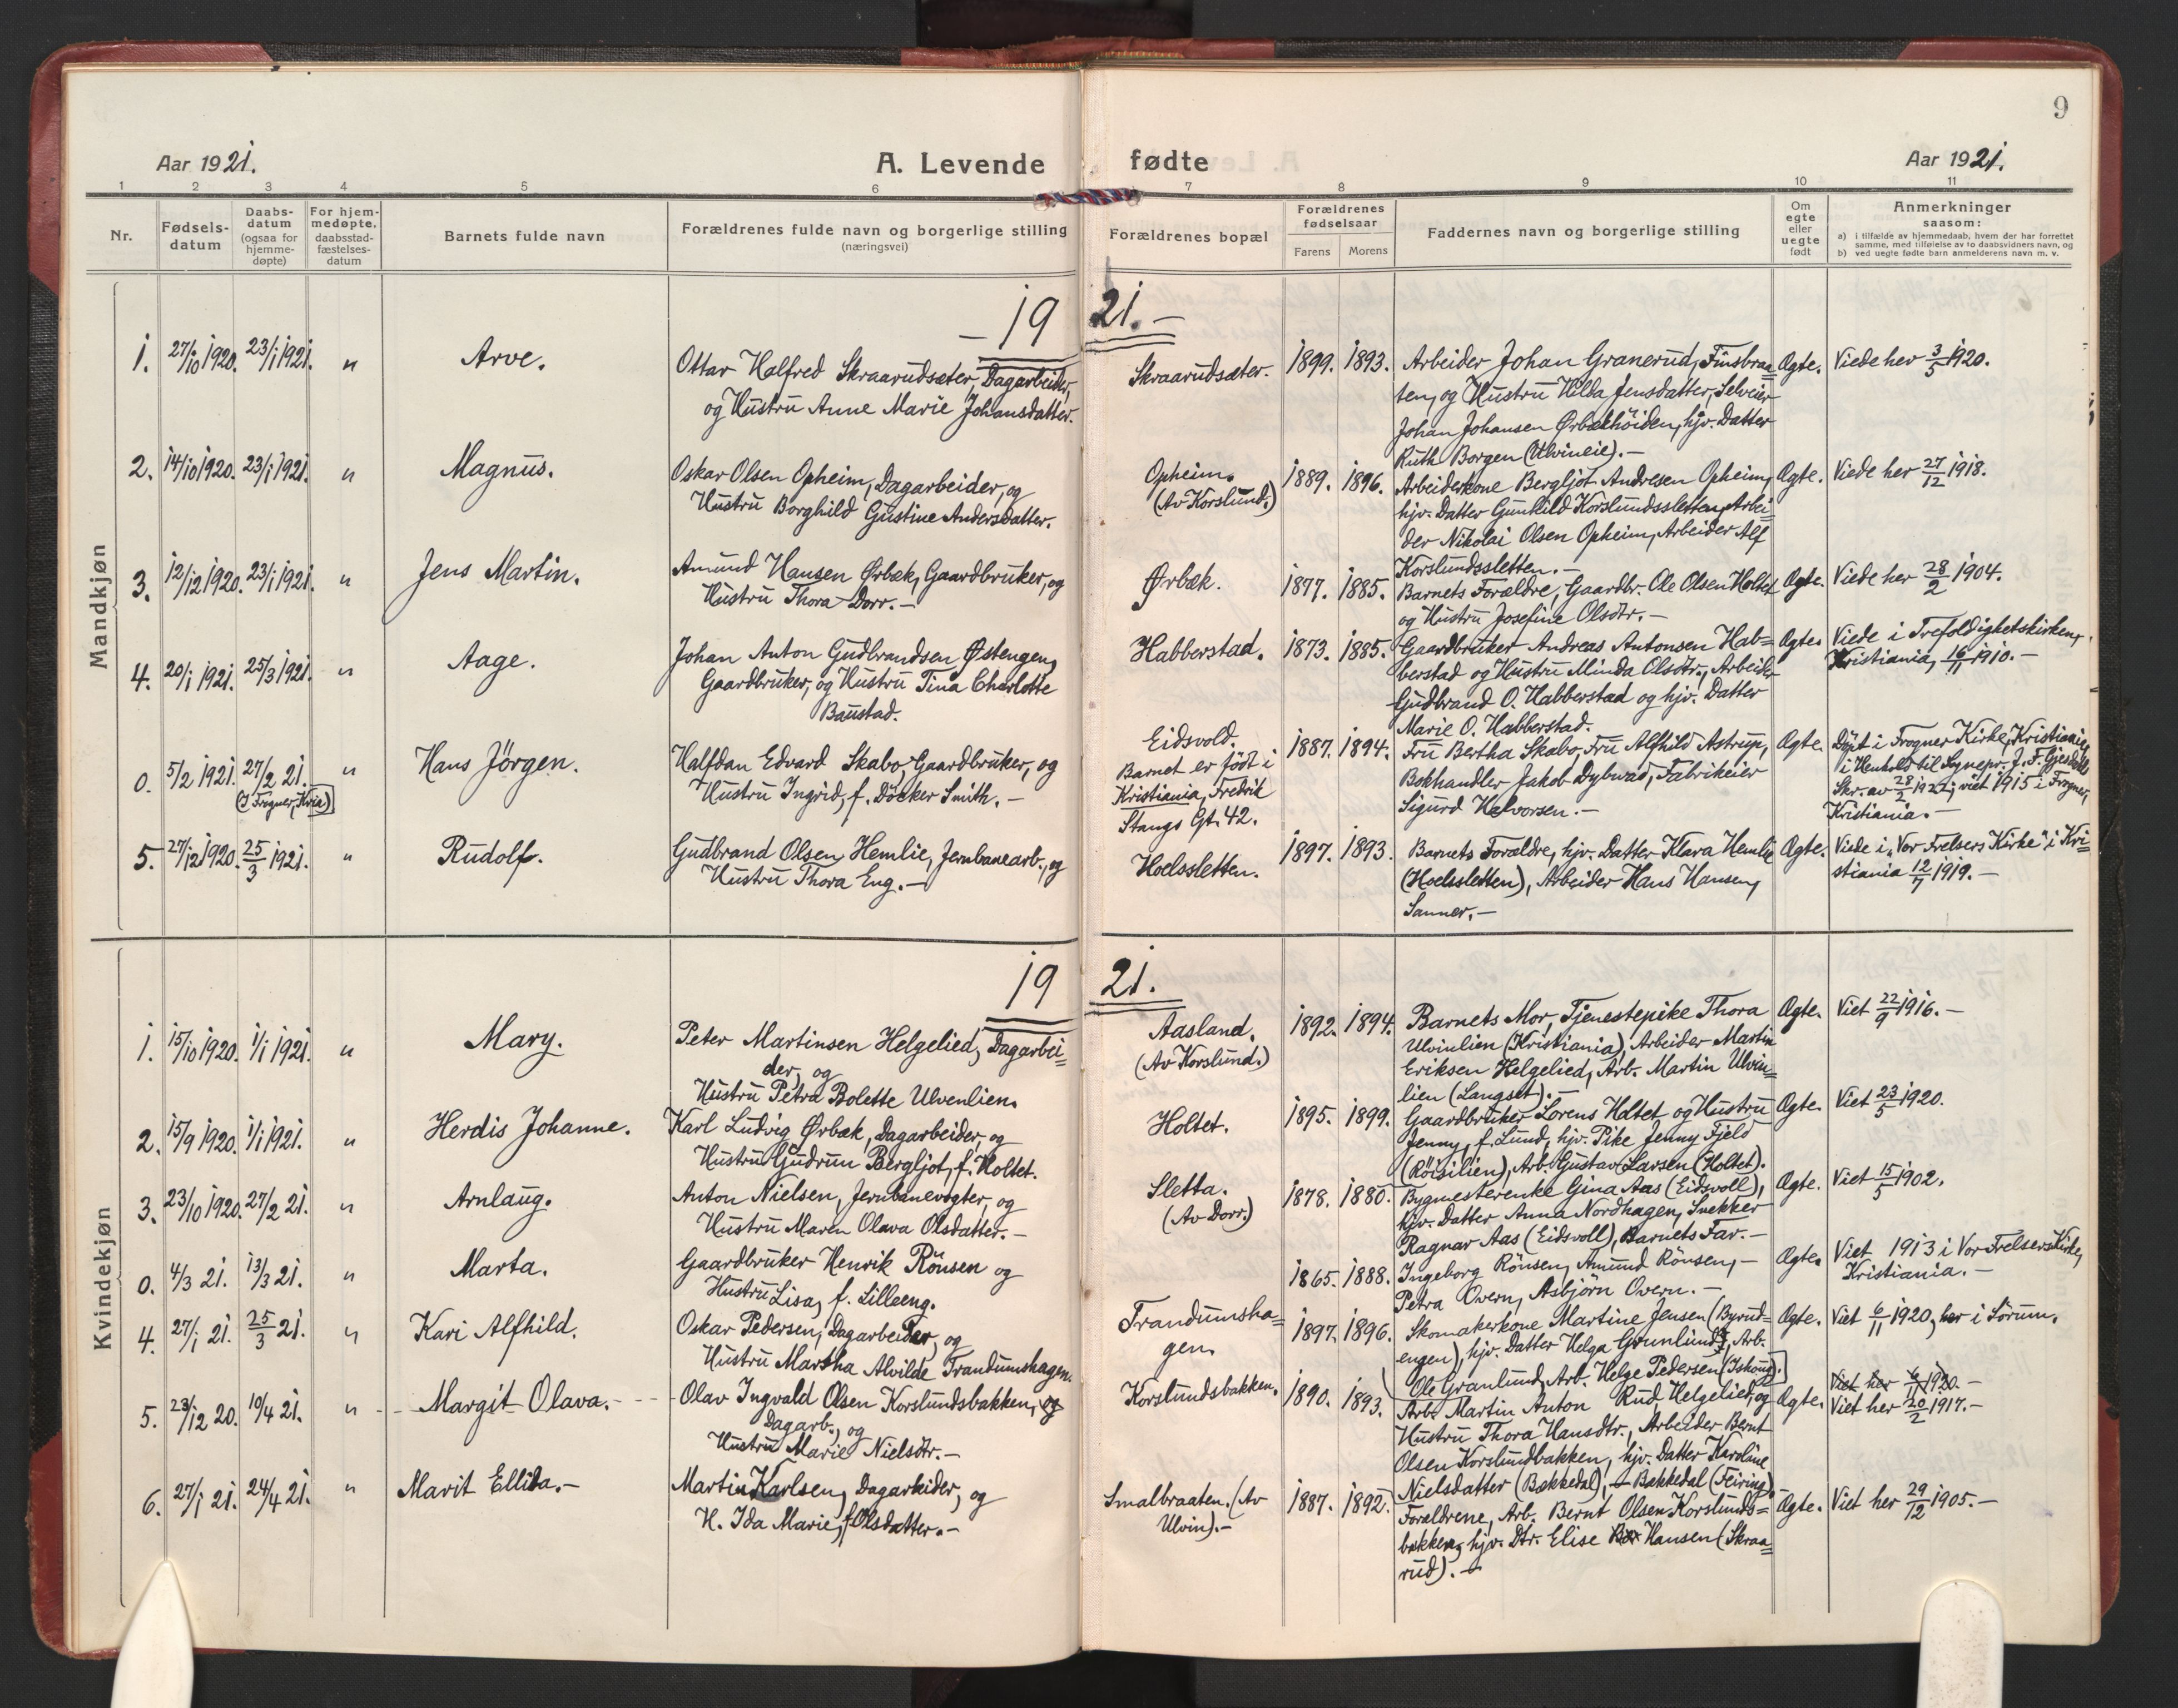 9
Aar 1921.
A. Levende fødte
Aar 1921.
1 2 3 4 5 6 7 8 9 10 11
Nr.
Fødsels-
datum
Daabs-
datum
(ogsaa for
hjemme-
døpte)
For hjem-
medøpte,
daabsstad-
fæstelses-
datum
Barnets fulde navn
Forældrenes fulde navn og borgerlige stilling
(næringsvei)
Forældrenes bopæl
Forældrenes
fødselsaar
Farens Morens
Faddernes navn og borgerlige stilling
Om
egte
eller
uegte
født
Anmerkninger
saasom:
a) i tilfælde av hjemmedaab, hvem der har forrettet
samme, med tilføielse av to daabsvidners navn, og
b) ved uegte fødte barn anmelderens navn m. v.
Mandkjøn
– 19 21. –
1. 27/10 1920. 23/1 1921. " Arve.
Ottar Halfred Skraarudsæter, Dagarbeider,
og Hustru Anne Marie Johansdatter.
Skraarudsæter. 1899. 1893.
Arbeider Johan Granerud, Finsbraa=
ten, og Hustru Hilda Jensdatter, Selveier
Johan Johansen Ørbækhöiden, hjv. Datter
Ruth Borgen (Ulvineie). –
Ægte. Viede her 3/5 1920.
2. 14/10 1920. 23/1 1921. " Magnus.
Oskar Olsen Opheim, Dagarbeider, og
Hustru Borghild Gustine Andersdatter.
Opheim.
(Av Korslund.)
1889. 1896.
Arbeiderkone Bergljot Andresen Opheim,
hjv. Datter Gunhild Korslundssletten, Arbei=
der Nikolai Olsen Opheim, Arbeider Alf
Korslundssletten. –
Ægte. Viede her 27/12 1918.
3. 12/12 1920. 23/1 1921. " Jens Martin.
Amund Hansen Ørbæk, Gaardbruker, og
Hustru Thora Dorr. –
Ørbæk. 1877. 1885.
Barnets Forældre, Gaardbr. Ole Olsen Holtet
og Hustru Josefine Olsdtr. –
Ægte. Viede her 28/2 1904.
4. 20/1 1921. 25/3 1921. " Aage.
Johan Anton Gudbrandsen Østengen,
Gaardbruker, og Hustru Tina Charlotte
Baustad.
Habberstad. 1873. 1885.
Gaardbruker Andreas Antonsen Hab=
berstad og Hustru Minda Olsdtr., Arbeider
Gudbrand O. Habberstad og hjv. Datter
Marie O. Habberstad.
Ægte. Viede i Trefoldighetskirken,
Kristiania, 16/11 1910. –
0. 5/2 1921. 27/2 21.
(I Frogner, Kria)
" Hans Jörgen.
Halfdan Edvard Skabo, Gaardbruker, og
Hustru Ingrid, f. Döcker Smith. –
Eidsvold.
Barnet er född i
Kristiania, Fredrik
Stangs Gt. 42.
1887. 1894.
Fru Bertha Skabo, Fru Alfhild Astrup,
Bokhandler Jakob Dybwad, Fabrikeier
Sigurd Halvorsen. –
Ægte. Döpt i Frogner Kirke, Kristiania,
i Henhold til Sognepr. J. F. Gjesdahls
Skr. av 28/2 1921; viet 1915 i Frogner,
Kristiania. –
5. 27/12 1920. 25/3 1921. " Rudolf.
Gudbrand Olsen Hemlie, Jernbanearb., og
Hustru Thora Eng. –
Hoelssletten. 1897. 1893.
Barnets Forældre, hjv. Datter Klara Hemlie
(Hoelssletten), Arbeider Hans Hansen,
Sanner. –
Ægte. Viede i „Vor Frelsers Kirke" i Kri=
stiania 12/7 1919. –
Kvindekjøn
19 21.
1. 15/10 1920. 1/1 1921. " Mary.
Peter Martinsen Helgelied, Dagarbei=
der, og
Hustru Petra Bolette Ulvenlien.
Aasland.
(Av Korslund.)
1892. 1894.
Barnets Mor, Tjenestepike Thora
Ulvinlien (Kristiania), Arbeider Martin
Eriksen Helgelied, Arb. Martin Ulvin=
lien (Langset). –
Ægte. Viet 22/9 1916. –
2. 15/9 1920. 1/1 1921. " Herdis Johanne.
Karl Ludvig Ørbæk, Dagarbeider, og
Hustru Gudrun Bergljot, f. Holtet.
Holtet. 1895. 1899.
Gaardbruker Lorens Holtet og Hustru
Jenny, f. Lund, hjv. Pike Jenny Fjeld
(Röisilien), Arb. Gustav Larsen (Holtet).
Ægte. Viet 23/5 1920.
3. 23/10 1920. 27/2 21. " Arnlaug.
Anton Nielsen, Jernbanevogter, og
Hustru Maren Olava Olsdatter. –
Sletta.
(Av Dorr.)
1878. 1880.
Bygmesterenke Gina Aas (Eidsvoll),
hjv. Datter Anna Nordhagen, Snekker
Ragnar Aas (Eidsvoll), Barnets Far. –
Ægte. Viet 15/5 1902.
0. 4/3 21. 13/3 21. " Marta.
Gaardbruker Henrik Rönsen og
Hustru Lisa, f. Lilleeng.
1865. 1888.
Ingeborg Rönsen, Amund Rönsen, –
Petra Overn, Asbjörn Overn. –
Ægte. Viet 1913 i Vor Frelsers Kirke,
Kristiania. –
4. 27/1 21. 25/3 21. " Kari Alfhild.
Oskar Pedersen, Dagarbeider, og
Hustru Martha Alvilde Trandumshagen.
Trandumsha=
gen.
1897. 1896.
Skomakerkone Martine Jensen (Byrud=
engen), hjv. Datter Helga Grunlund, Arb.
Ole Granlund, Arb. Helge Pedersen (Iskoug).
Ægte. Viet 6/11 1920, her i Sörum.
Viet her 6/11 1920. –
5. 23/12 20. 10/4 21. " Margit Olava. –
Olav Ingvald Olsen Korslundsbakken, og
Dagarb., og
Hustru Marie Nielsdtr. –
Korslundsbakken. 1890. 1893.
Arb. Martin Anton Rud Helgelied, og
Hustru Thora Hansdtr., Arbeider Bernt
Olsen Korslundbakken, hjv. Datter Karoline
Nielsdatter (Bækkedal), – Bækkedal (Feiring). –
Ægte. Viet her 20/2 1917. –
6. 27/1 21. 24/4 21. " Marit Ellida. –
Martin Karlsen, Dagarbeider, og
H. Ida Marie, f. Olsdatter. –
Smalbraaten. (Av
Ulvin). –
1887. 1892.
Forældrene, Arb. Bernt Olsen Korslunds=
bakken, hjv. Dtr. Elise Hansen (Skraa=
rud). –
Ægte. Viet her 29/12 1905. –